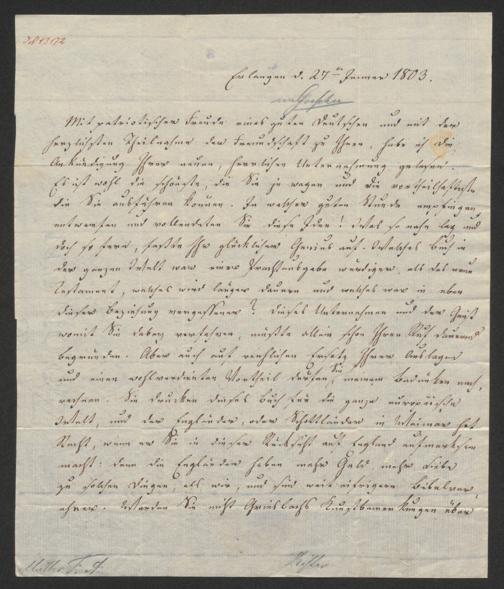 Erlangen d. 27ten Jenner 1803.
Mit patriotischer Freude eines guten Deutschen und mit der
herzlichsten Theilnahme der Freundschaft zu Ihnen, habe ich die
Ankündigung Ihrer neuen, herrlichen Unternehmung gelesen.
Es ist wohl die schönste, die Sie je wagen und die vortheilhafteste
die Sie ausführen können. In welcher guten Stunde empfingen,
entwarfen und vollendeten Sie diese Idee! Was so nahe lag und
doch so fern, faßte Ihr glücklicher Genius auf. Welches Buch in
der ganzen Welt war einer Prachtausgabe würdiger, als das neue
Testament, welches wird länger dauern und welches war in eben
dieser Beziehung vergessener? Dieses Unternehmen und der Geist
womit Sie dabey verfahren, müßte allein schon Ihren Ruf dauernd
begründen. Aber auch auf reichlichen Ersatz Ihrer Auslagen
und einen wohlverdienten Vortheil dürfen Sie, meinem Bedünken nach,
rechnen. Sie drucken dieses Buch für die ganze europäische
Welt, und der Engländer, oder Schottländer in Weimar hat
Recht, wenn er Sie in dieser Rücksicht auf England aufmerksam
macht: denn die Engländer haben mehr Geld, mehr Liebe
zu solchen Dingen, als wir, und sind weit eifrigere Bibelver¬
ehrer. Werden Sie nicht Griesbachs Anmerkungen über